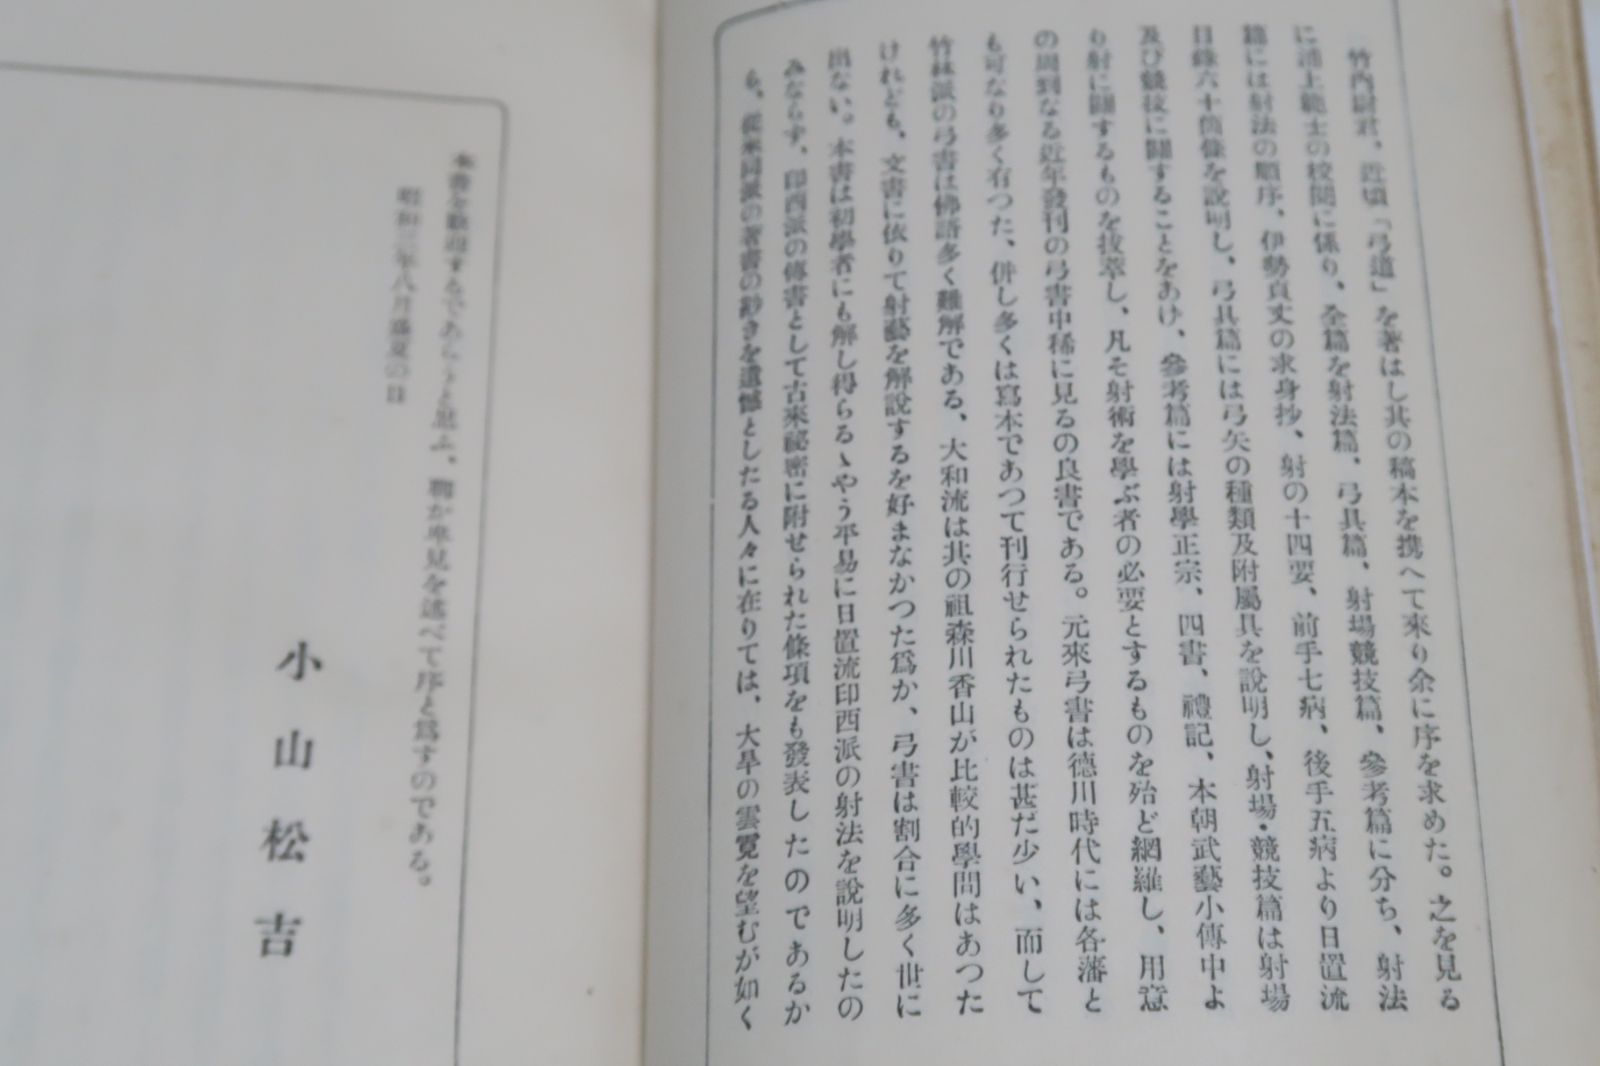 竹內尉君、近頃「弓道」を著はし其の稿本を携へて來り余に序を求めた。之を見る
に浦上範士の校閱に係り、全篇を射法篇、弓具篇、射場競技篇、參考篇に分ち、射法
篇には射法の順序、伊勢貞丈の求身抄、射の十四要、前手七病、後手五病より日置流
目錄六十箇條を說明し、弓具篇には弓矢の種類及附屬具を說明し、射場・競技篇は射場
及び競技に關することをあげ、參考篇には射學正宗、四書、禮記、本朝武藝小傳中よ
り射に關するものを拔萃し、凡そ射術を學ぶ者の必要とするものを殆ど網羅し、用意
の周到なる近年發刊の弓書中稀に見るの良書である。元來弓書は德川時代には各藩と
も可なり多く有つた、併し多くは寫本であつて刊行せられたものは甚だ少い、而して
竹林派の弓書は佛語多く難解である、大和流は其の祖森川香山が比較的學問はあつた
けれども、文書に依りて射藝を解說するを好まなかつた爲か、弓書は割合に多く世に
出ない。本書は初學者にも解し得らるゝやう平易に日置流印西派の射法を說明したの
みならず、印西派の傳書として古來祕密に附せられた條項をも發表したのであるか
ら、從來同派の著書の尠きを遺憾としたる人々に在りては、大旱の雲霓を望むが如く
本書を歡迎するであらうと思ふ、聊か卑見を述べて序と爲すのである。
昭和三年八月盛夏の日
小山松吉